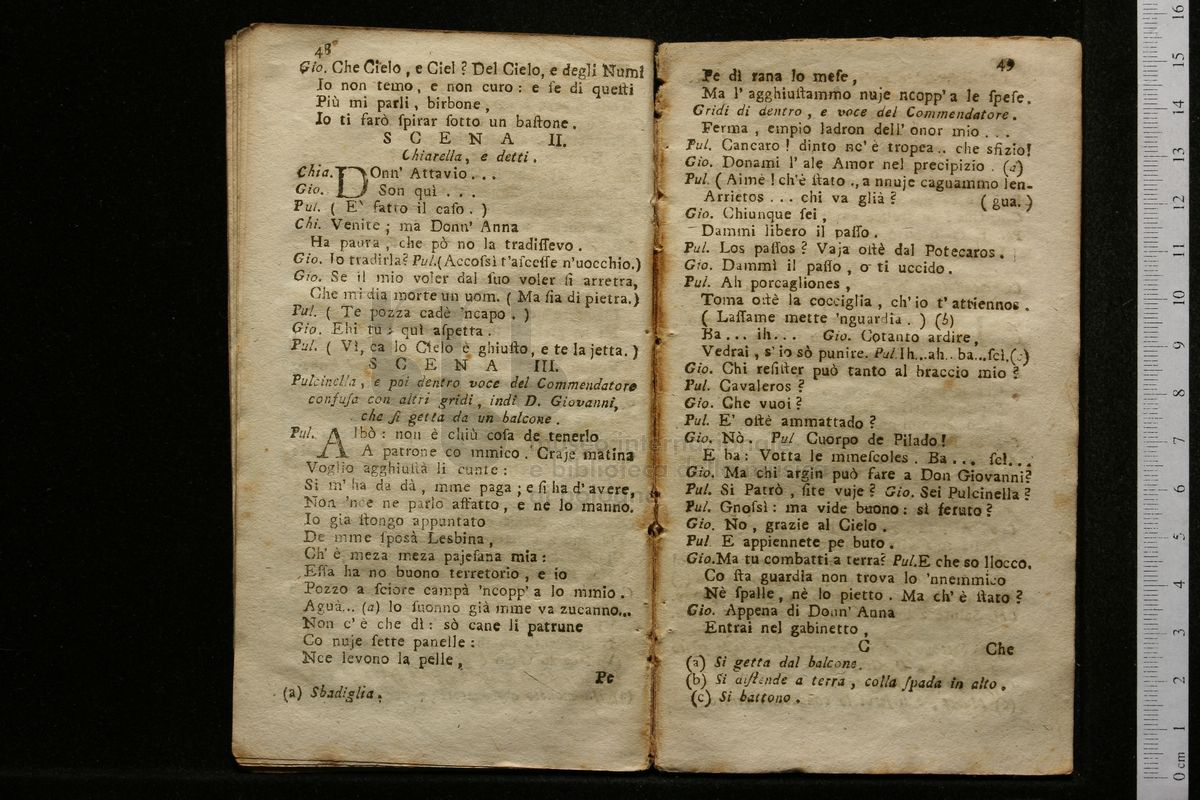 48
Gio. Che Cielo, e Ciel? Del Cielo, e degli Numi
Io non temo, e non curo: e ſe di queſti
Più mi parli, birbone,
Io ti farò ſpirar ſotto un baſtone.
SCENA II.
Chiarella, e detti.
Chia. DOnn' Attavio...
Gio. Son quì...
Pul. ( E' fatto il caſo. )
Chi. Venite; ma Donn' Anna
Ha paura, che pò no la tradiſſevo.
Gio. Io tradirla? Pul. (Accoſsì t'aſceſſe n'uocchio.)
Gio. Se il mio voler dal ſuo voler ſi arretra,
Che mi dia morte un uom. ( Ma ſia di pietra.)
Pul. ( Te pozza cadè 'ncapo. )
Gio. Ehi tu: quì aſpetta.
Pul. ( Vì, ca lo Cielo è ghiuſto, e te la jetta. )
SCENA III.
Pulcinella, e poi dentro voce del Commendatore
confuſa con altri gridi, indi D. Giovanni,
che ſi getta da un balcone.
Pul. Albò: non è chiù coſa de tenerlo
A patrone co mmico. Craje matina
Voglio agghiuſtà li cunte:
Si m' ha da dà, mme paga; e ſi ha d' avere,
Non 'nce ne parlo affatto, e ne lo manno.
Io gia ſtongo appuntato
De mme ſposà Lesbina,
Ch' è meza meza pajeſana mia:
Eſſa ha no buono terretorio, e io
Pozzo a ſciore campà 'ncopp' a lo mmio.
Aguà... (a) lo ſuonno già mme va zucanno...
Non c' è che dì: sò cane li patrune
Co nuje ſette panelle:
Nce levono la pelle,
Pe
(a) Sbadiglia.
49
Pe dì rana lo meſe,
Ma l' agghiuſtammo nuje ncopp' a le ſpeſe.
Gridi di dentro, e voce del Commendatore.
Ferma, empio ladron dell' onor mio...
Pul. Cancaro! dinto nc' è tropea.. che sfizio!
Gio. Donami l' ale Amor nel precipizio. (a)
Pul. ( Aimè! ch'è ſtato., a nnuje caguammo len-
Arrietos... chi va glià? (gua.)
Gio. Chiunque ſei,
Dammi libero il paſſo.
Pul. Los paſſos? Vaja oſtè dal Potecaros.
Gio. Dammi il paſſo, o ti uccido.
Pul. Ah porcagliones,
Toma oſtè la cocciglia, ch' io t' attiennos.
( Laſſame mette 'nguardia. ) (b)
Ba... ih... Gio. Cotanto ardire,
Vedrai, s' io sò punire. Pul. Ih...ah.. ba...ſcì. (c)
Gio. Chi reſiſter può tanto al braccio mio?
Pul. Cavaleros?
Gio. Che vuoi?
Pul. E' oſtè ammattado?
Gio. Nò. Pul. Cuorpo de Pilado!
E ba: Votta le mmeſcoles. Ba... ſcì...
Gio. Ma chi argin può fare a Don Giovanni?
Pul. Si Patrò, ſite vuje? Gio. Sei Pulcinella?
Pul. Gnoſsì: ma vide buono: sì feruto?
Gio. No, grazie al Cielo.
Pul. E appiennete pe buto.
Gio. Ma tu combatti a terra? Pul. E che so llocco.
Co ſta guardia non trova lo 'nnemmico
Nè ſpalle, nè lo pietto. Ma ch' è ſtato?
Gio. Appena di Donn' Anna
Entrai nel gabinetto,
C Che
(a) Si getta dal balcone.
(b) Si diſtende a terra, colla ſpada in alto.
(c) Si battono.
16
15
14
13
12
11
10
9
8
7
6
5
4
3
2
1
0 cm